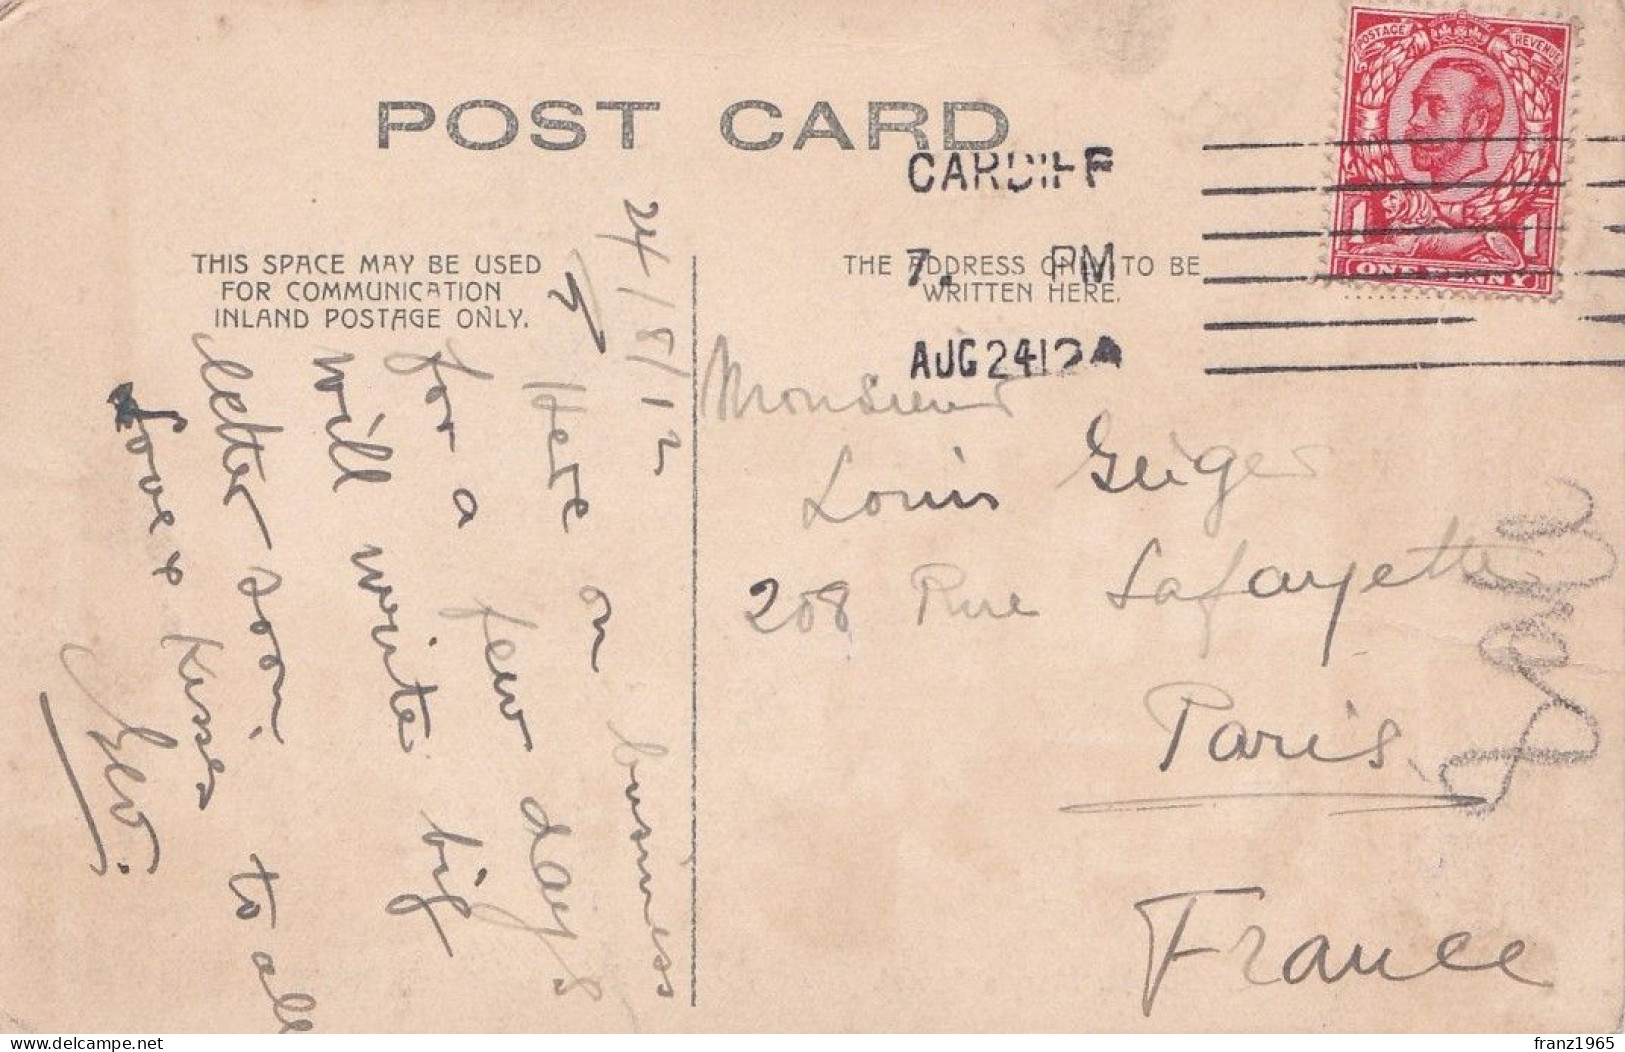 POST CARD
CARDIFF
7. PM
AUG 24 12
POSTAGE REVENUE
1 1
ONE PENNY
THIS SPACE MAY BE USED
FOR COMMUNICATION
INLAND POSTAGE ONLY.
THE ADDRESS ONLY TO BE
WRITTEN HERE.
24/8/12
Here on business
for a few days
will write big
letter soon. to all
Love & Kisses
Monsieur
Louis Geiger
208 Rue Lafayette
Paris.
France
delcampe.net
franz1965